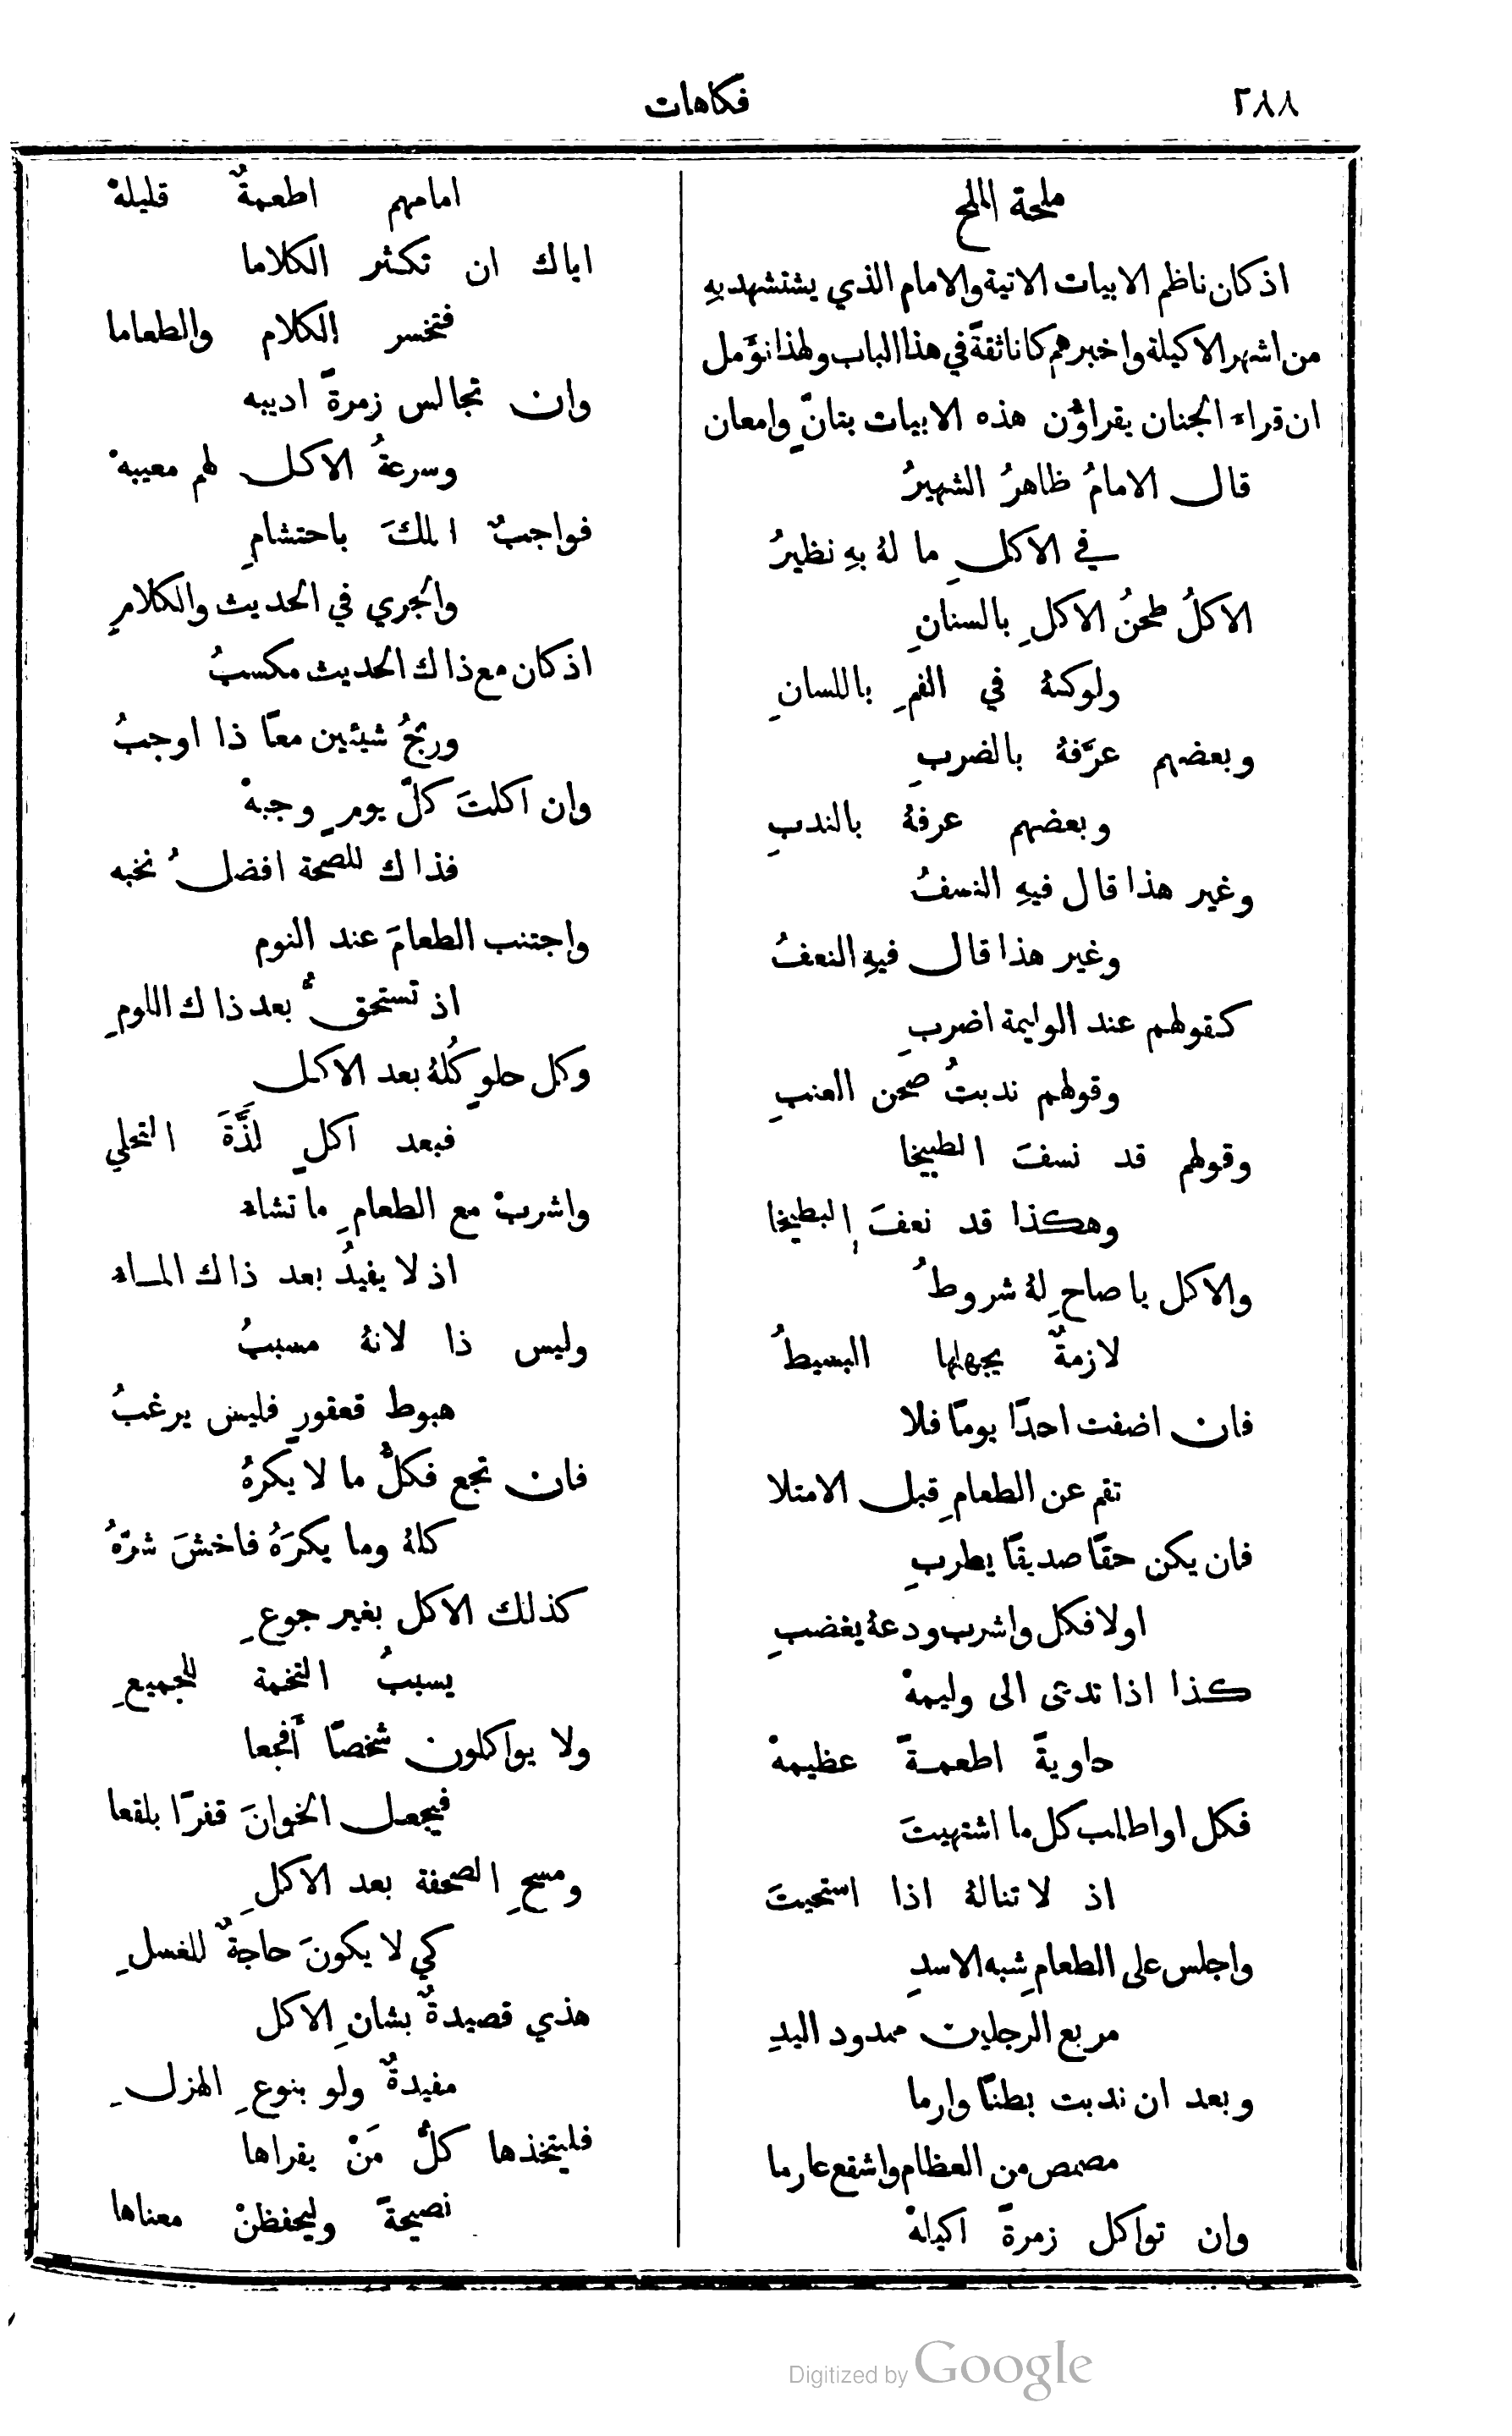 ٢٨٨
فكاهات
ملحة الملح
اذ كان ناظم الابيات الاتية والامام الذي يستشهد بهِ
من اشهر الاكيلة واخبرهم كانا ثقةً في هذا الباب ولهذا نؤَمل
ان قراءَ الجنان يقراوُّن هذه الابيات بتانٍّ وامعان
قال الامامُ ظاهرُ الشهيرُ
في الاكلِ ما لهُ بهِ نظيرُ
الاكلُ طحنُ الاكلِ بالسنانِ
ولوكهُ في الفمِ باللسانِ
وبعضهم عرَّفهُ بالضربِ
وبعضهم عرفهُ بالندبِ
وغير هذا قال فيهِ النسفُ
وغير هذا قال فيهِ النعفُ
كقولهم عند الوليمة اضربِ
وقولهم ندبتُ صحن العنبِ
وقولهم قد نسفتَ الطبيخا
وهكذا قد نعفتَ البطيخا
والاكل يا صاحِ لهُ شروطُ
لازمةٌ يجهلها البسيطُ
فان اضفت احدًا يومًا فلا
تقم عن الطعامِ قبل الامتلا
فان يكن حقًا صديقًا يطربِ
اولا فكل واشرب ودعهُ يغضبِ
كذا اذا تدعى الى وليمهْ
حاويةً اطعمةً عظيمهْ
فكل او اطلب كل ما اشتهيتَ
اذ لا تنالهُ اذا استحيتَ
واجلس على الطعامِ شبه الاسدِ
مربع الرجلين ممدود اليدِ
وبعد ان ندبت بطنًا وارما
مصمص من العظام واشفع عارما
وان تواكل زمرةً اكيلهْ
امامهم اطعمةٌ قليلهْ
اياك ان تكثر الكلاما
فتخسر الكلام والطعاما
وان تجالس زمرةً اديبه
وسرعةُ الاكل لهم معيبهْ
فواجبٌ الملكَ باحتشامِ
والجري في الحديث والكلامِ
اذ كان مع ذاك الحديث مكسبُ
وربحُ شيئين معًا ذا اوجبُ
وان اكلتَ كلَّ يومٍ وجبهْ
فذاك للصحة افضلُ نخبه
واجتنب الطعامَ عند النوم
اذ تستحقُّ بعد ذاك اللومِ
وكل حلوٍ كُلهُ بعد الاكل
فبعد اكلٍ لذَّةَ التحلي
واشربْ مع الطعامِ ما تشاء
اذ لا يفيدُ بعد ذاك الماء
وليس ذا لانهُ مسببُ
هبوط قعفورٍ فليس يرغبُ
فان تجع فكلُّ ما لا يكرهُ
كلهُ وما يكرَهُ فاخشَ شرَّهُ
كذلك الاكل بغير جوعِ
يسببُ التخمة للجميعِ
ولا يواكلون شخصًا أَفجعا
فيجعل الخوانَ قفرًا بلقعا
ومسحِ الصحفة بعد الاكلِ
كي لا يكونَ حاجةٌ للغسلِ
هذي قصيدةٌ بشانِ الاكل
مفيدةٌ ولو بنوعِ الهزلِ
فليتخذها كلُّ مَنْ يقراها
نصيحةً وليحفظنْ معناها
Digitized by Google